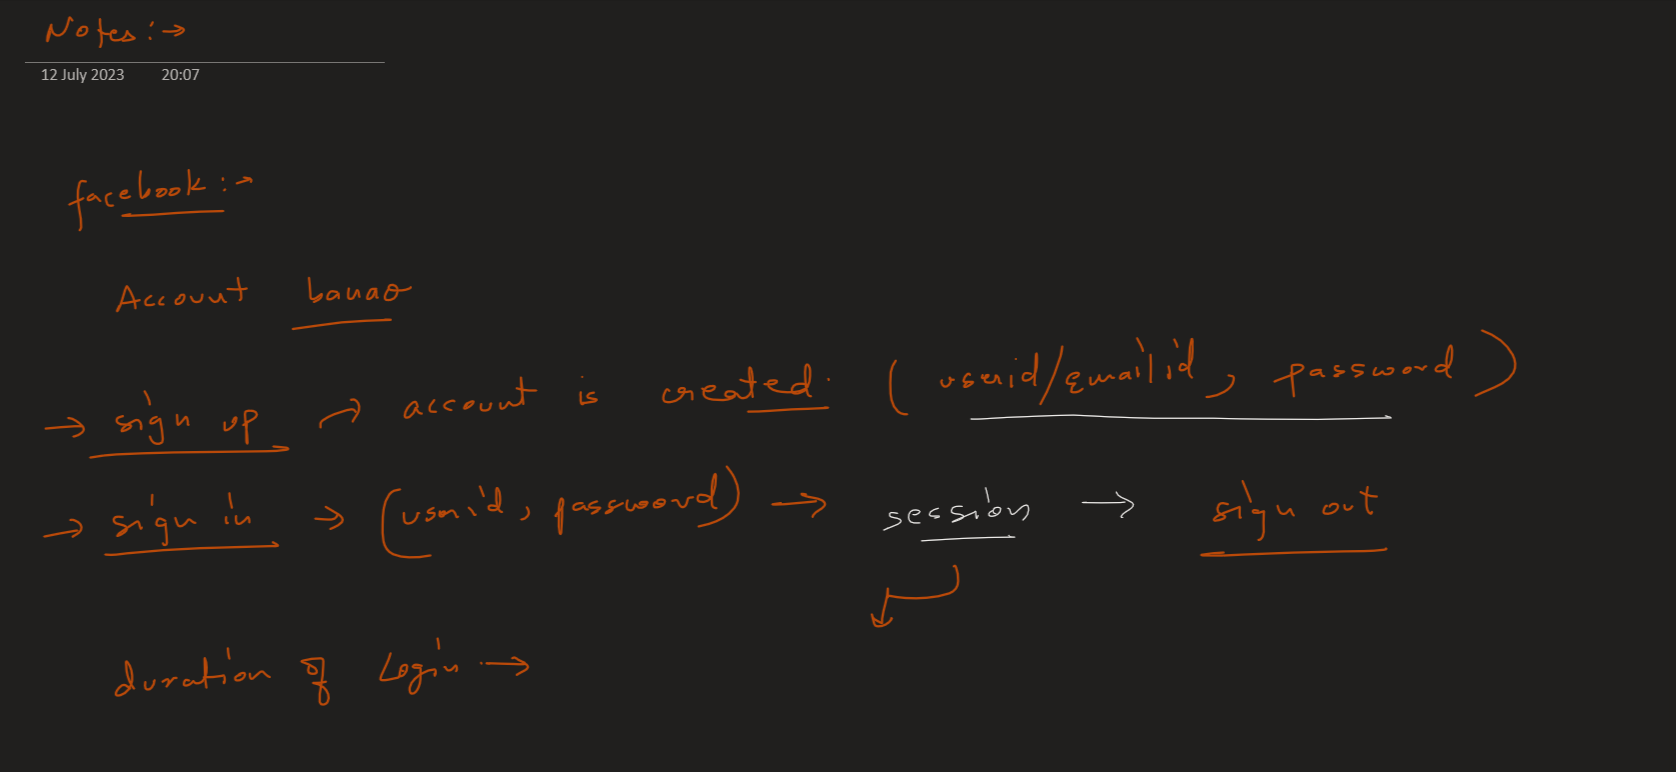 Notes :→
12 July 2023 20:07
facebook :→
Account banao
→ sign up → account is created. (userid/emailid, password)
→ sign in → (userid, password) → session → sign out
duration of Login →